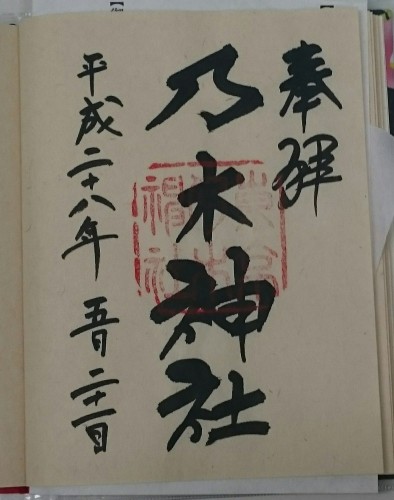 奉拝
乃木神社
平成二十八年 五月二十一日